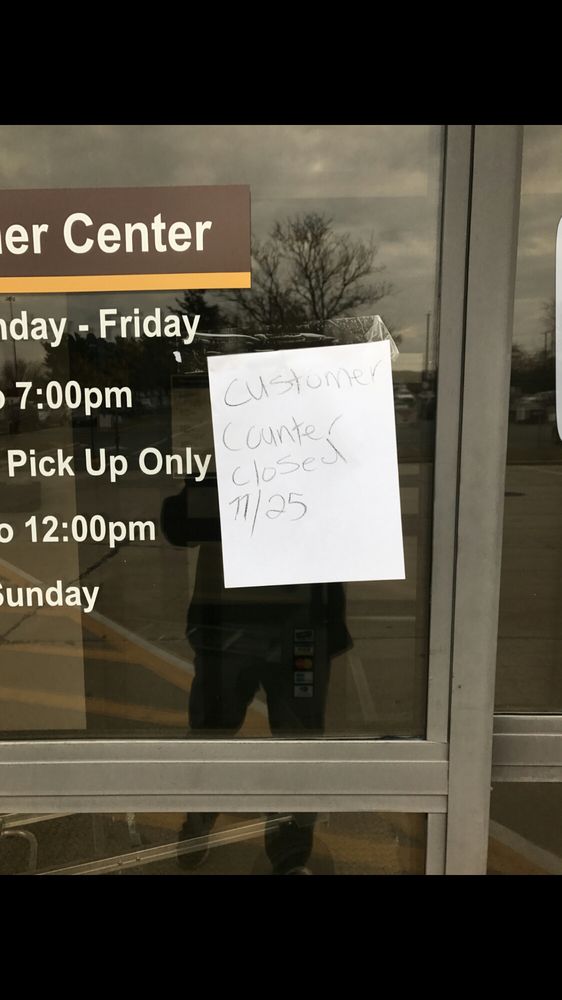 er Center
nday - Friday
o 7:00pm
Pick Up Only
o 12:00pm
Sunday
Customer
Counter
Closed
11/25